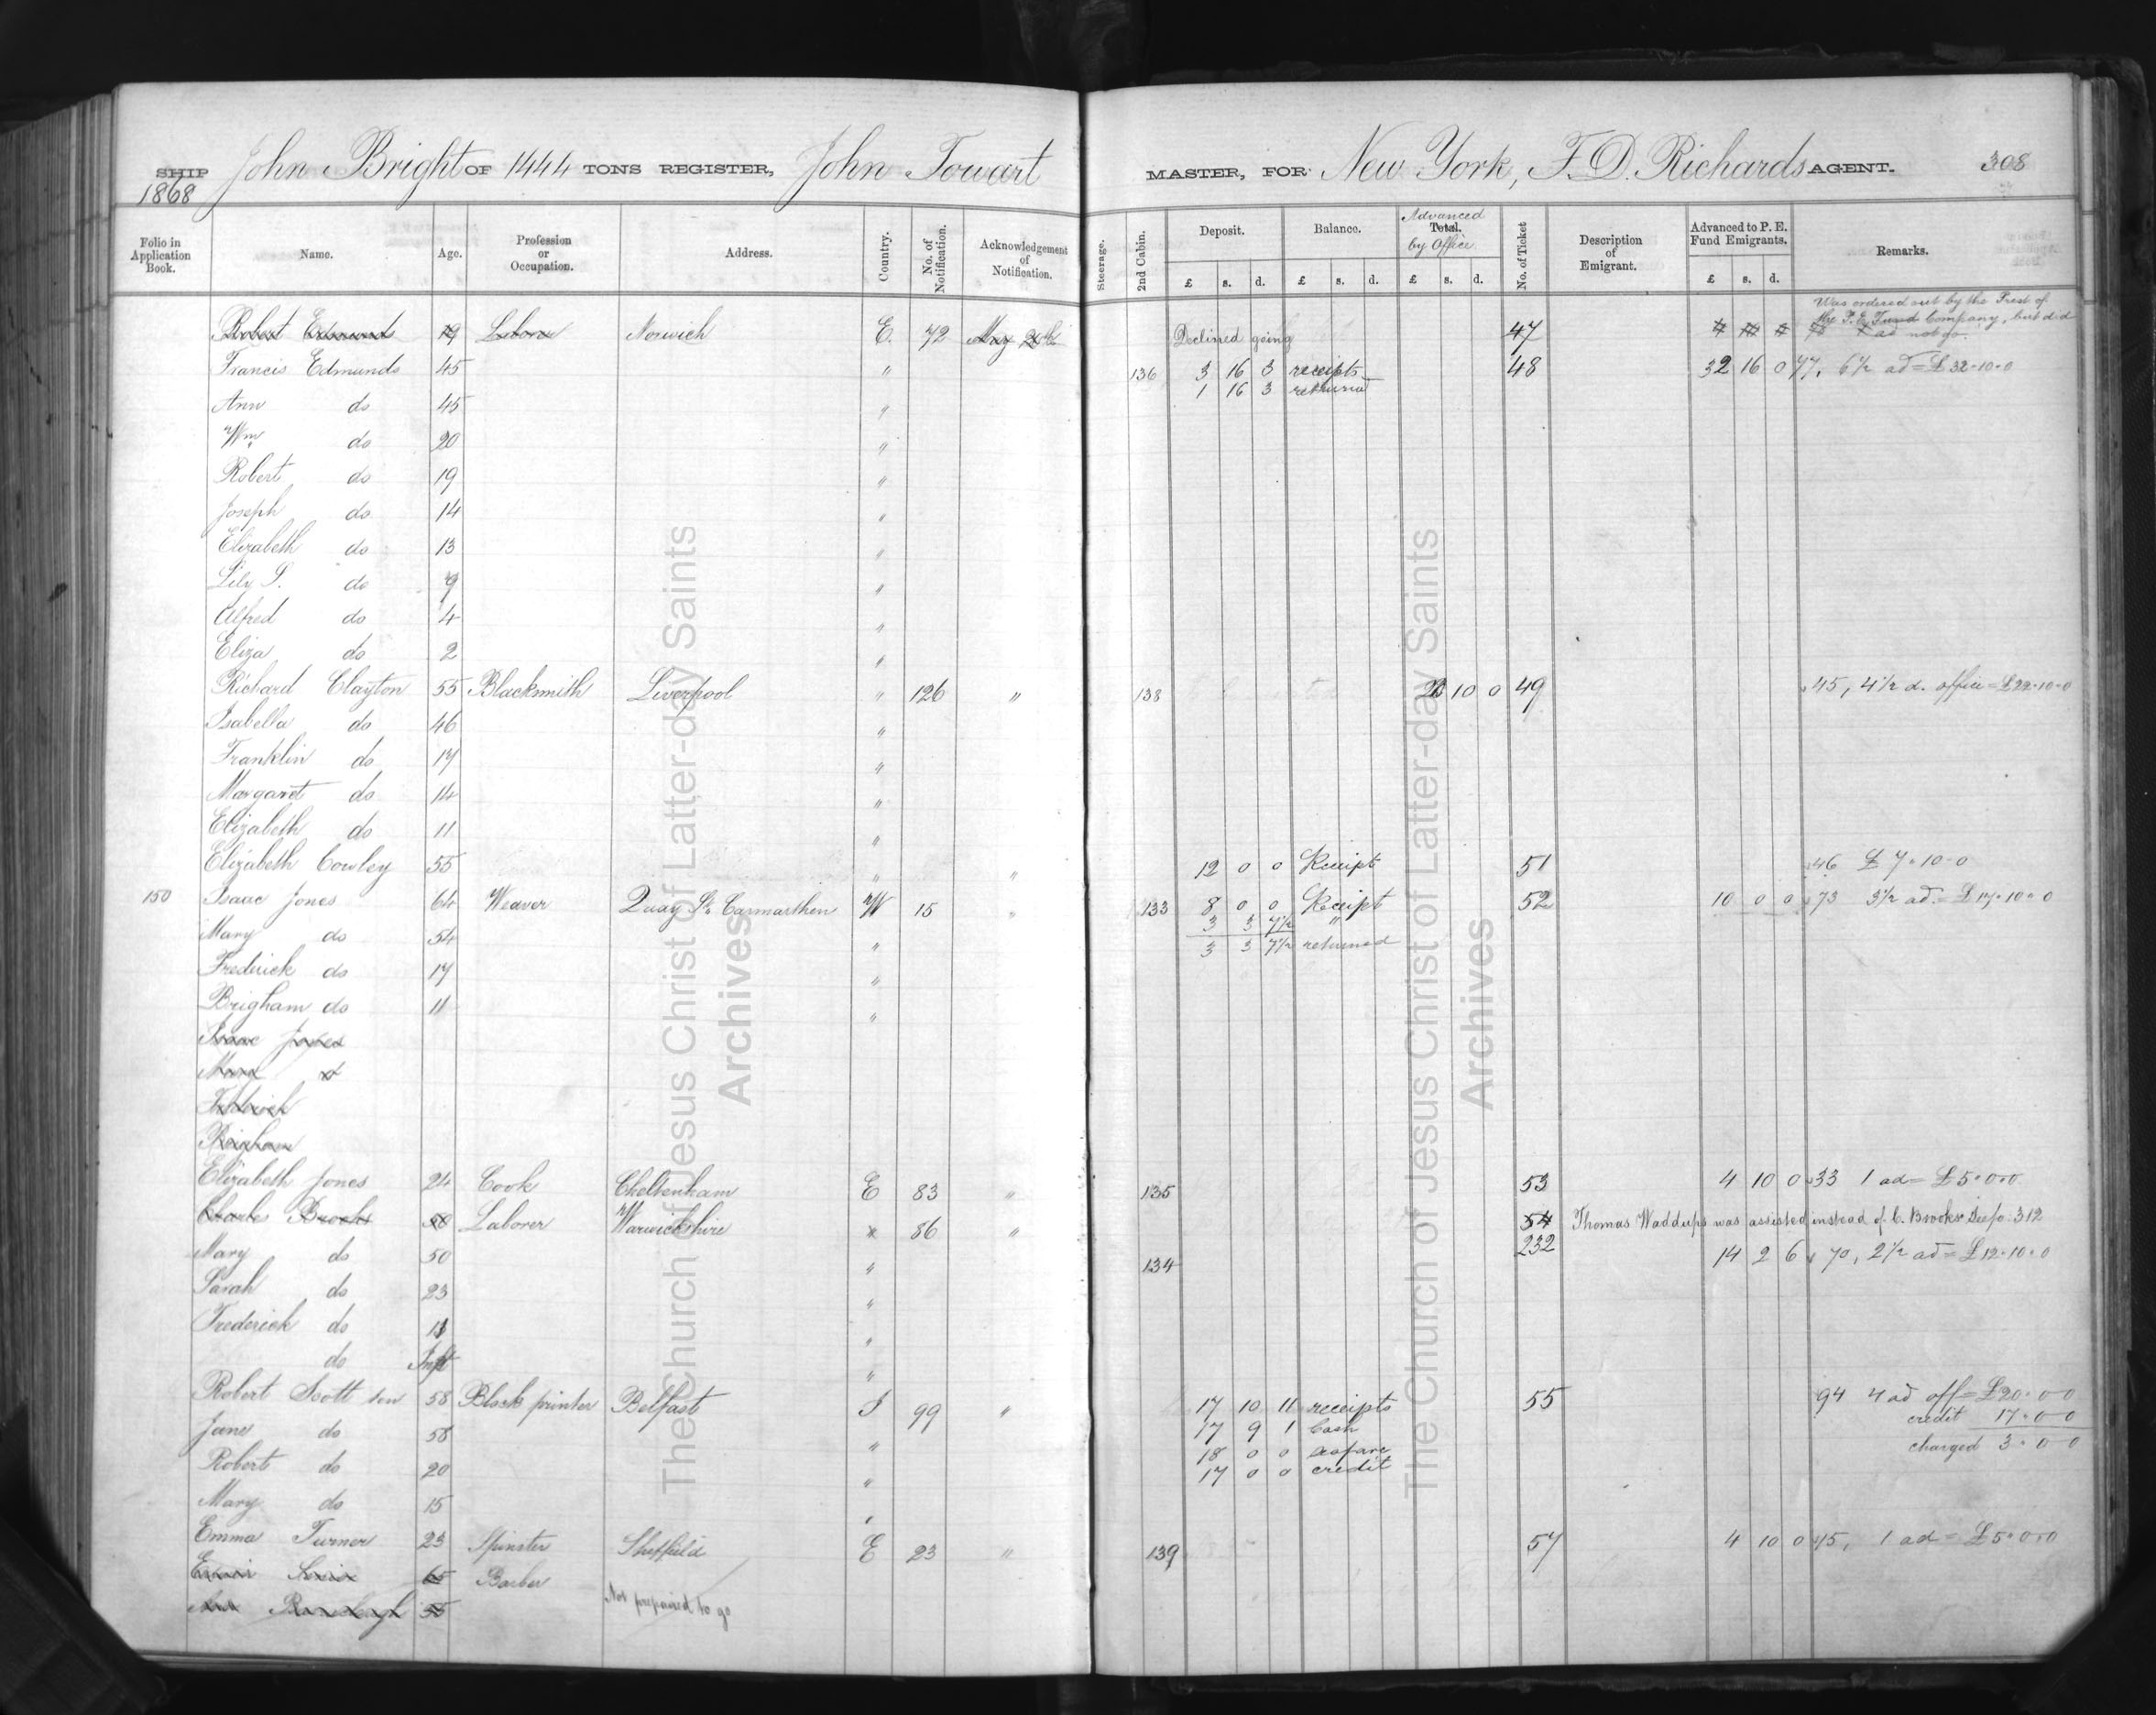 SHIP John Bright OF 1444 TONS REGISTER, John Towart MASTER, FOR New York, F. D. Richards AGENT. 308
1868
Folio in Application Book. Name. Age. Profession or Occupation. Address. Country. No. of Notification. Acknowledgement of Notification. Steerage. 2nd Cabin. Deposit. Balance. Advanced Total. by Office No. of Ticket Description of Emigrant. Advanced to P. E. Fund Emigrants. Remarks.
£ s. d. £ s. d. £ s. d. £ s. d.
Was ordered out by the Prest of
Robert Edmunds 19 Laborer Norwich E. 72 May 26th Declined going 47 the P. E. Fund Company, but did
ad not go.
Francis Edmunds 45 " 136 3 16 3 receipts 48 32 16 0 77, 6½ ad = £32-10-0
1 16 3 returned
Ann do 45 "
Wm do 20 "
Robert do 19 "
Joseph do 14 "
Elizabeth do 13 "
Lily S. do 9 "
Alfred do 4 "
Eliza do 2 "
Richard Clayton 55 Blacksmith Liverpool " 126 " 138 10 0 49 45, 4½ d. office = £22-10-0
Isabella do 46 "
Franklin do 17 "
Margaret do 14 "
Elizabeth do 11 "
Elizabeth Cowley 55 " " 12 0 0 Receipt 51 46 £7-10-0
150 Isaac Jones 64 Weaver Quay St. Carmarthen W 15 " 133 8 0 0 Receipt 52 10 0 0 73 3½ ad. = £17-10-0
3 3 7½ "
Mary do 54 " 3 3 7½ returned
Fredrick do 17 "
Brigham do 11 "
Isaac Jones
Mary d
Fredrick
Brigham
Elizabeth Jones 24 Cook Cheltenham E 83 " 135 53 4 10 0 33 1 ad = £5-0-0
Charles Brooks 50 Laborer Warwickshire " 86 " 54 Thomas Waddups was assisted instead of C. Brooks. See fo. 312
232
Mary do 50 " 134 14 2 6 70, 2½ ad = £12-10-0
Sarah do 23 "
Frederick do 11 "
do Inft "
Robert Scott sen 58 Block printer Belfast I 99 " 17 10 11 receipts 55 94 4 ad off = £20-0-0
17 9 1 Cash credit 17-0-0
Jane do 58 " 18 0 0 charged 3-0-0
17 0 0 credit
Robert do 20 "
Mary do 15 "
Emma Turner 23 Spinster Sheffield E 23 " 139 57 4 10 0 15, 1 ad = £5-0-0
65 Barber
Not prepared to go
55
The Church of Jesus Christ of Latter-day Saints
Archives
The Church of Jesus Christ of Latter-day Saints
Archives